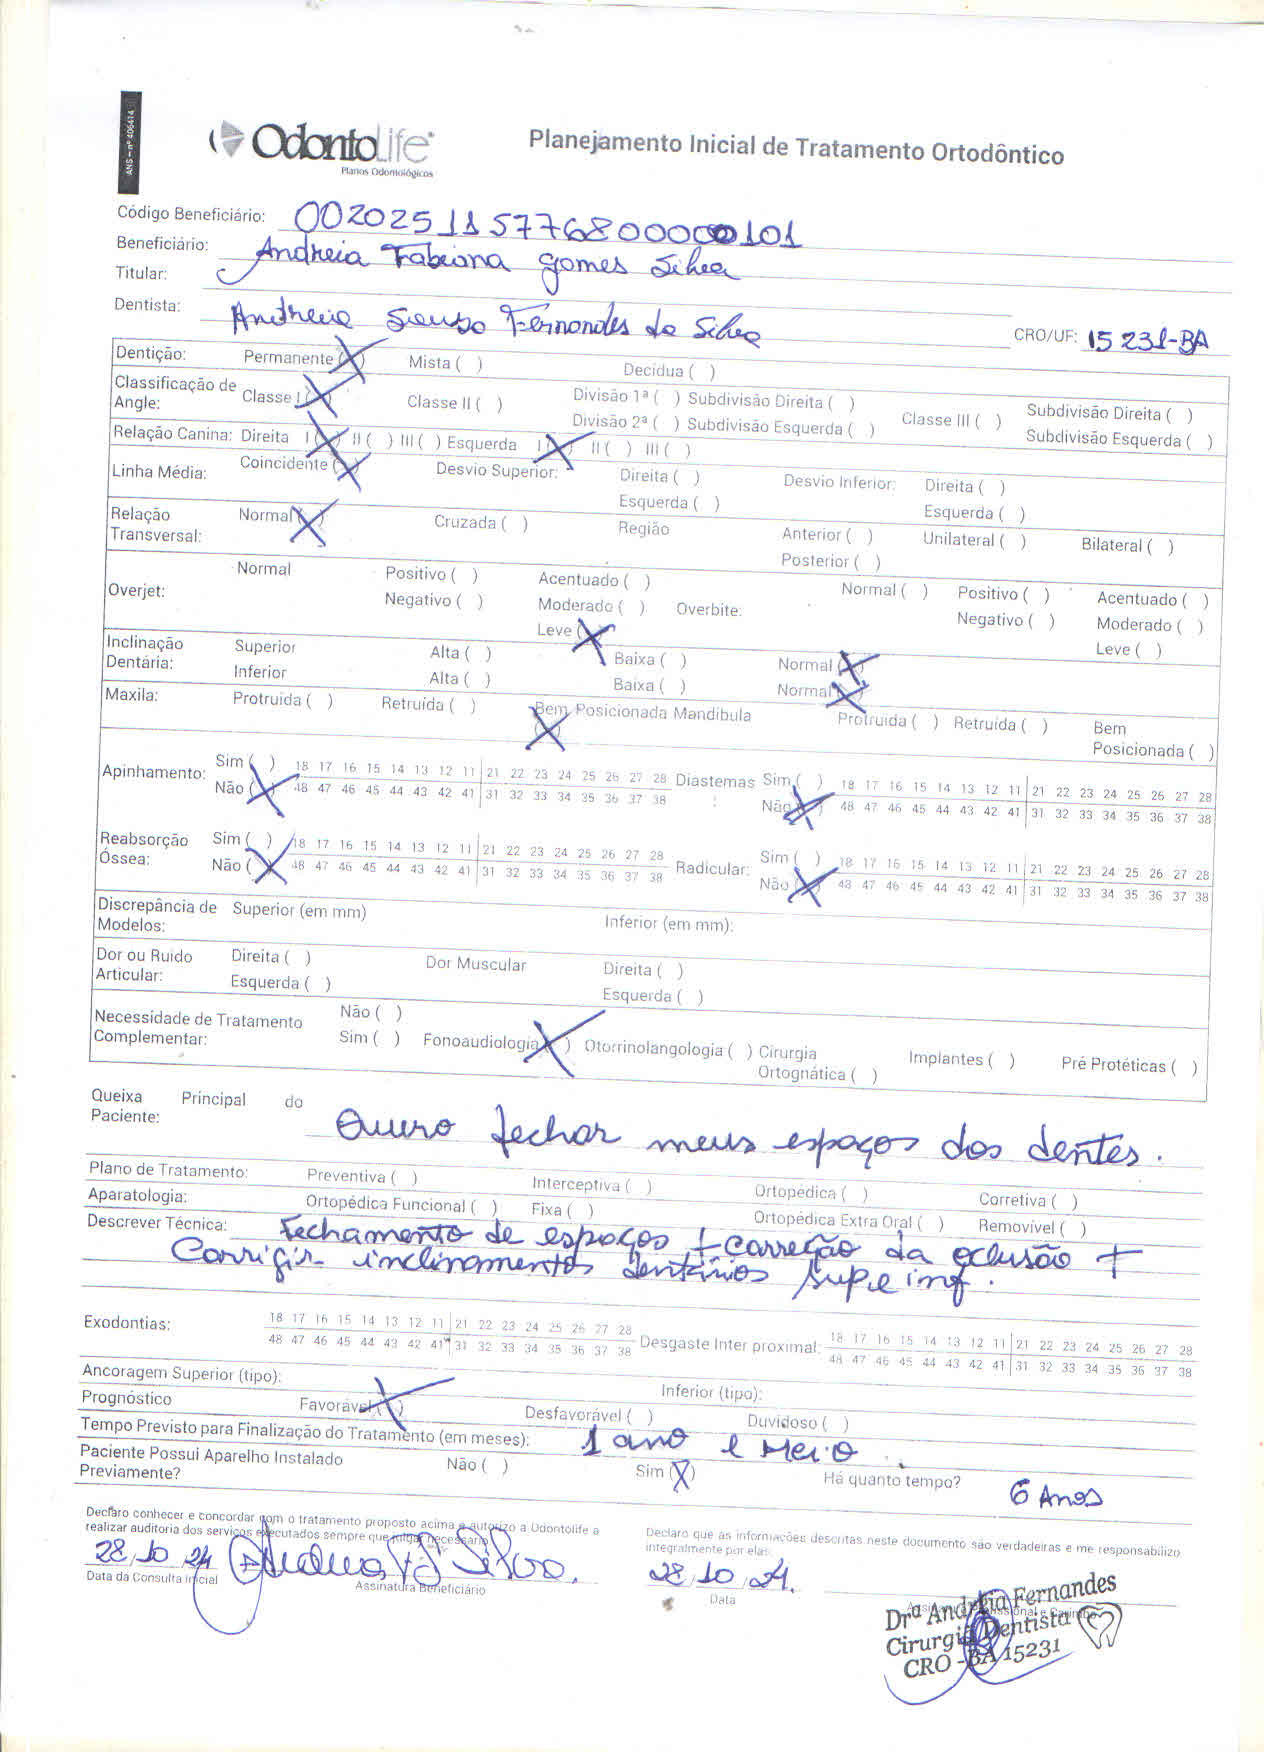 ANS - nº 406414
OdontoLife
Planos Odontológicos
Planejamento Inicial de Tratamento Ortodôntico
Código Beneficiário: 0020251157768000000101
Beneficiário: Andreia Fabiana Gomes Silva
Titular:
Dentista: Andreia Souza Fernandes da Silva CRO/UF: 15231-BA
Dentição: Permanente (X) Mista ( ) Decídua ( )
Classificação de Angle: Classe I (X) Classe II ( ) Divisão 1ª ( ) Subdivisão Direita ( ) Classe III ( ) Subdivisão Direita ( )
Divisão 2ª ( ) Subdivisão Esquerda ( ) Subdivisão Esquerda ( )
Relação Canina: Direita I (X) II ( ) III ( ) Esquerda I (X) II ( ) III ( )
Linha Média: Coincidente (X) Desvio Superior: Direita ( ) Desvio Inferior: Direita ( )
Esquerda ( ) Esquerda ( )
Relação Transversal: Normal (X) Cruzada ( ) Região Anterior ( ) Unilateral ( ) Bilateral ( )
Posterior ( )
Overjet: Normal Positivo ( ) Acentuado ( ) Overbite: Normal ( ) Positivo ( ) Acentuado ( )
Negativo ( ) Moderado ( ) Negativo ( ) Moderado ( )
Leve (X) Leve ( )
Inclinação Dentária: Superior Alta ( ) Baixa ( ) Normal (X)
Inferior Alta ( ) Baixa ( ) Normal (X)
Maxila: Protruida ( ) Retruida ( ) Bem Posicionada (X) Mandíbula Protruida ( ) Retruida ( ) Bem Posicionada ( )
Apinhamento: Sim ( ) 18 17 16 15 14 13 12 11 21 22 23 24 25 26 27 28 Diastemas Sim ( ) 18 17 16 15 14 13 12 11 21 22 23 24 25 26 27 28
Não (X) 48 47 46 45 44 43 42 41 31 32 33 34 35 36 37 38 : Não (X) 48 47 46 45 44 43 42 41 31 32 33 34 35 36 37 38
Reabsorção Óssea: Sim ( ) 18 17 16 15 14 13 12 11 21 22 23 24 25 26 27 28 Radicular: Sim ( ) 18 17 16 15 14 13 12 11 21 22 23 24 25 26 27 28
Não (X) 48 47 46 45 44 43 42 41 31 32 33 34 35 36 37 38 Não (X) 48 47 46 45 44 43 42 41 31 32 33 34 35 36 37 38
Discrepância de Modelos: Superior (em mm) Inferior (em mm):
Dor ou Ruido Articular: Direita ( ) Dor Muscular Direita ( )
Esquerda ( ) Esquerda ( )
Necessidade de Tratamento Complementar: Não ( )
Sim ( ) Fonoaudiologia (X) Otorrinolangologia ( ) Cirurgia Ortognática ( ) Implantes ( ) Pré Protéticas ( )
Queixa Principal do Paciente: Quero fechar meus espaços dos dentes.
Plano de Tratamento: Preventiva ( ) Interceptiva ( ) Ortopédica ( ) Corretiva ( )
Aparatologia: Ortopédica Funcional ( ) Fixa ( ) Ortopédica Extra Oral ( ) Removível ( )
Descrever Técnica: Fechamento de espaços + correção da oclusão +
Corrigir inclinamentos dentários sup e inf.
Exodontias: 18 17 16 15 14 13 12 11 21 22 23 24 25 26 27 28 Desgaste Inter proximal: 18 17 16 15 14 13 12 11 21 22 23 24 25 26 27 28
48 47 46 45 44 43 42 41 31 32 33 34 35 36 37 38 48 47 46 45 44 43 42 41 31 32 33 34 35 36 37 38
Ancoragem Superior (tipo): Inferior (tipo):
Prognóstico Favorável (X) Desfavorável ( ) Duvidoso ( )
Tempo Previsto para Finalização do Tratamento (em meses): 1 ano e meio.
Paciente Possui Aparelho Instalado Previamente? Não ( ) Sim (X) Há quanto tempo? 6 Anos
Declaro conhecer e concordar com o tratamento proposto acima e autorizo a Odontolife a
realizar auditoria dos serviços executados sempre que julgar necessário.
Declaro que as informações descritas neste documento são verdadeiras e me responsabilizo
integralmente por elas.
28/10/24 Silva.
Data da Consulta Inicial Assinatura Beneficiário
28/10/24.
Data
Drª Andréia Fernandes
Cirurgiã Dentista
CRO-BA 15231